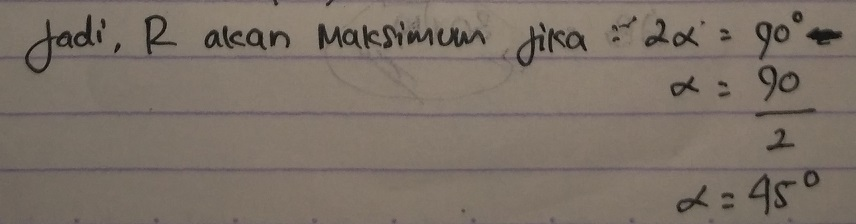 Jadi, R akan Maksimum jika : 2α = 90°
α = 90
2
α = 45°